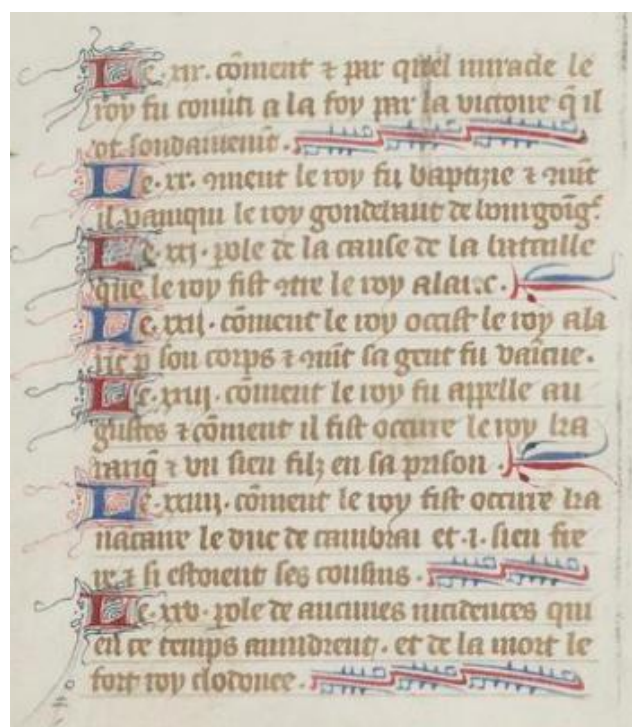 Le .xix. cõment ⁊ par quel miracle le
roy fu cõuiti a la foy par la victoire q̃ il
ot soudainemẽt.
Le .xx. ꝯment le roy fu baptizie ⁊ ꝯmẽt
il vainqui le roy gondebaut de bourgoig̃.
Le .xxj. ꝑole de la cause de la bataille
que le roy fist ꝯtre le roy alaric.
Le .xxij. cõment le roy occist le roy ala
ric ꝑ son corps ⁊ ꝯmẽt sa gent fu vaĩcue.
Le .xxiij. cõment le roy fu appelle au
gustes ⁊ cõment il fist occirre le roy ka
rariq̃ ⁊ vn sien filz en sa prison.
Le .xxiiij. cõment le roy fist occirre ra
nacaire le duc de cambrai et .i. sien fre
re ⁊ si estoient ses cousins.
Le .xxv. ꝑole de aucunes incidences qui
en ce temps auindrent. et de la mort le
fort roy clodouee.